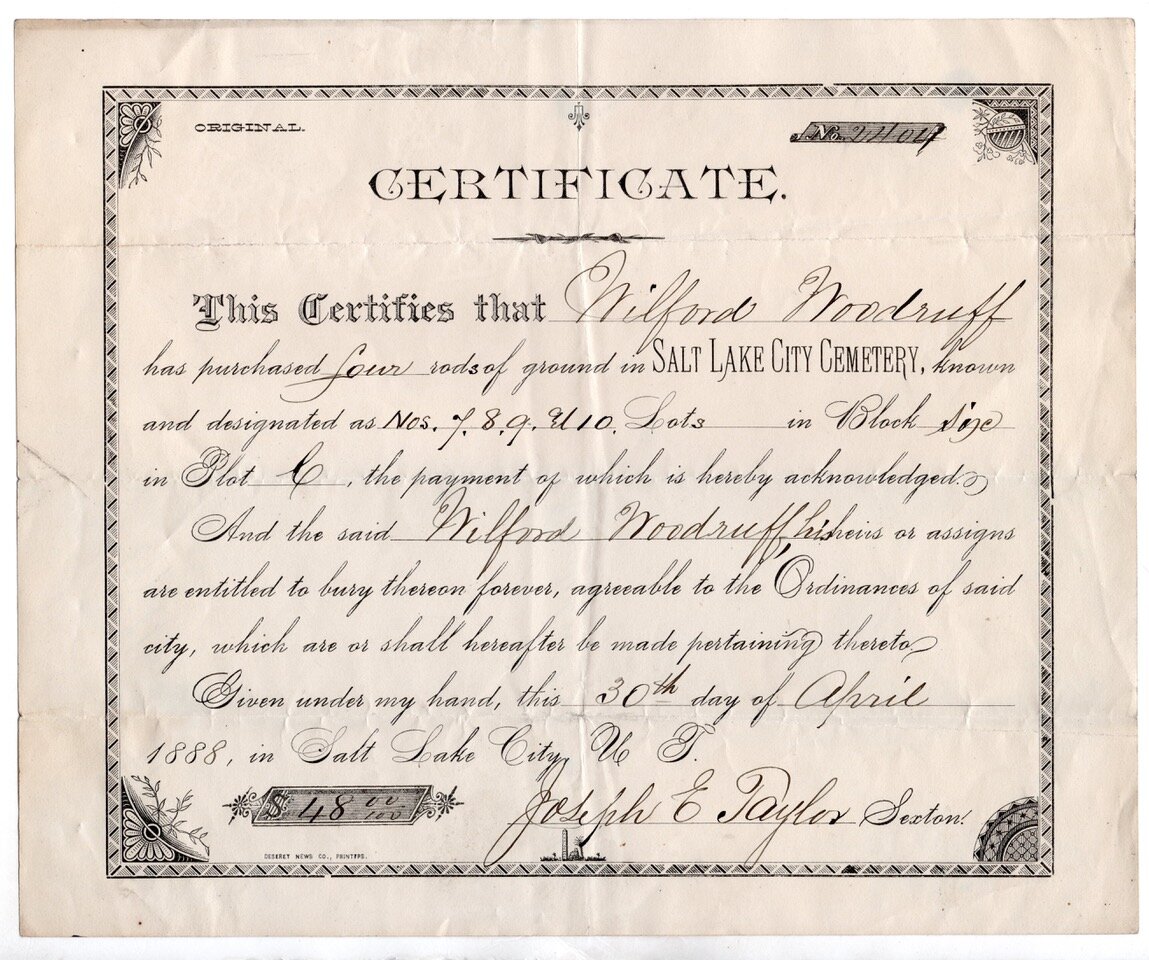 ORIGINAL.
No. 2404
CERTIFICATE.
This Certifies that Wilford Woodruff
has purchased four rods of ground in SALT LAKE CITY CEMETERY, known
and designated as Nos. 7. 8. 9. & 10. Lots in Block Six
in Plot C, the payment of which is hereby acknowledged.
And the said Wilford Woodruff, his heirs or assigns
are entitled to bury thereon forever, agreeable to the Ordinances of said
city, which are or shall hereafter be made pertaining thereto
Given under my hand, this 30th day of April
1888, in Salt Lake City, U. T.
$48 00/100
Joseph E Taylor Sexton.
DESERET NEWS CO., PRINTERS.